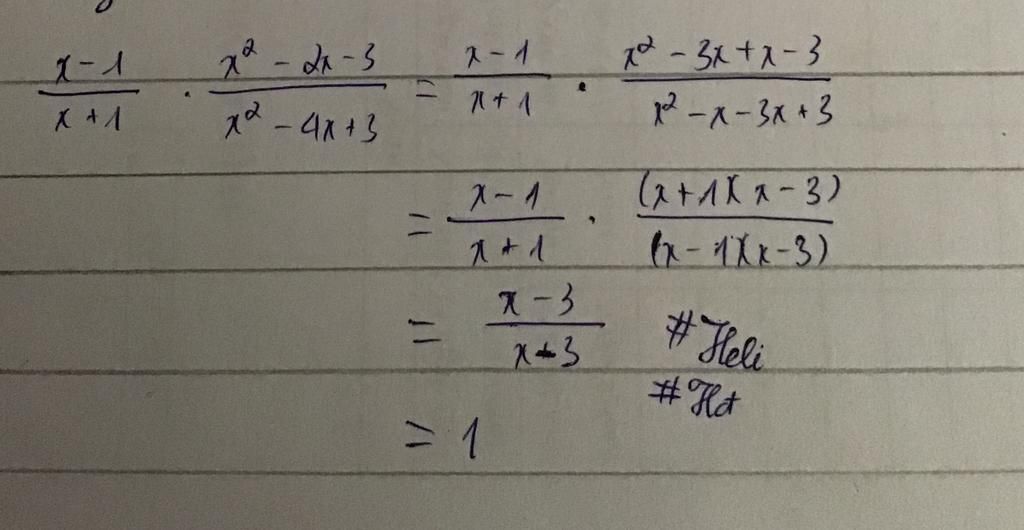 x - 1 / x + 1 · x² - 2x - 3 / x² - 4x + 3 = x - 1 / x + 1 · x² - 3x + x - 3 / x² - x - 3x + 3
= x - 1 / x + 1 · (x + 1)(x - 3) / (x - 1)(x - 3)
= x - 3 / x - 3 #Heli
#Ht
= 1